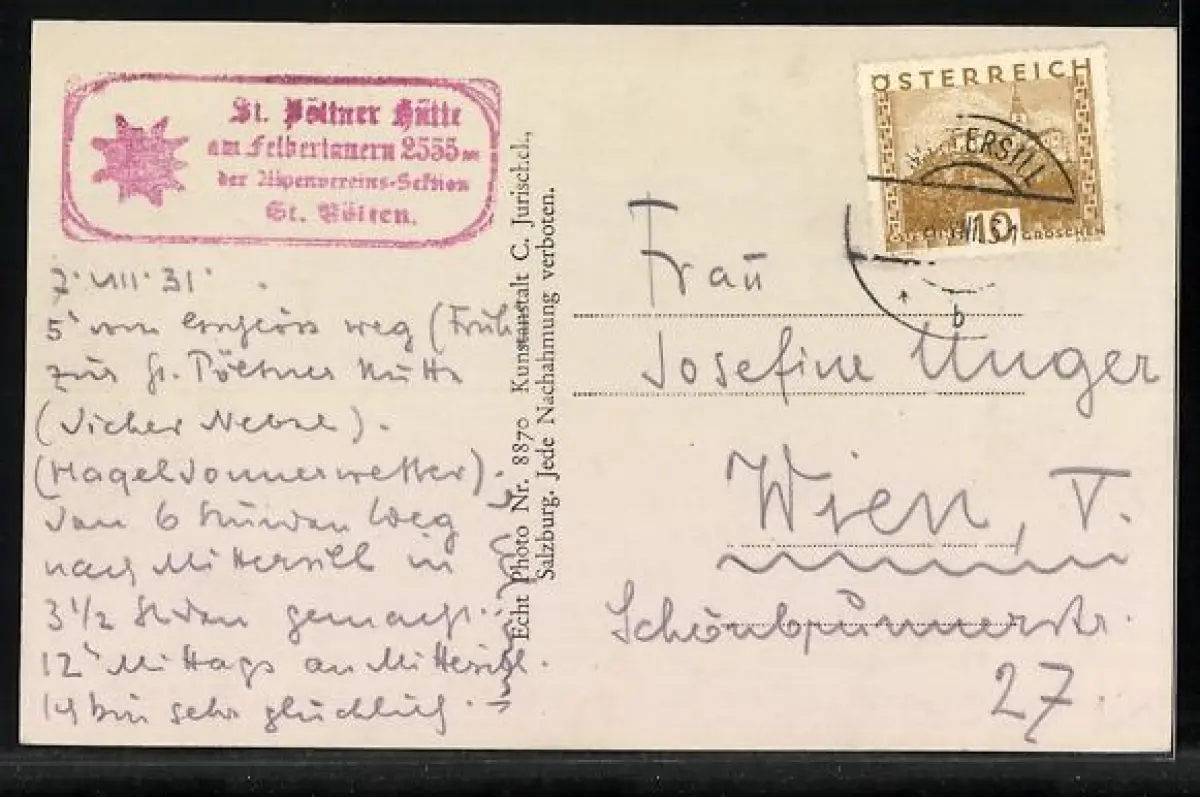 St. Pöltner Hütte
am Felbertauern 2535 m
der Alpenvereins-Sektion
St. Pölten.
7. VIII. 31.
5h vom weg (Früh
zur St. Pöltner Hütte
(Sicher Nebel).
(Hageldonnerwetter).
Den 6 Stunden Weg
nach Mittersill in
3 1/2 Stden gemacht.
12h Mittags an Mittersill.
Ich bin sehr glücklich.
Echt Photo Nr. 8870 Kunstanstalt C. Jurischek,
Salzburg. Jede Nachahmung verboten.
ÖSTERREICH
10
GROSCHEN
MITTERSILL
b
Frau
Josefine Unger
Wien, V.
Schönbrunnerstr.
27.